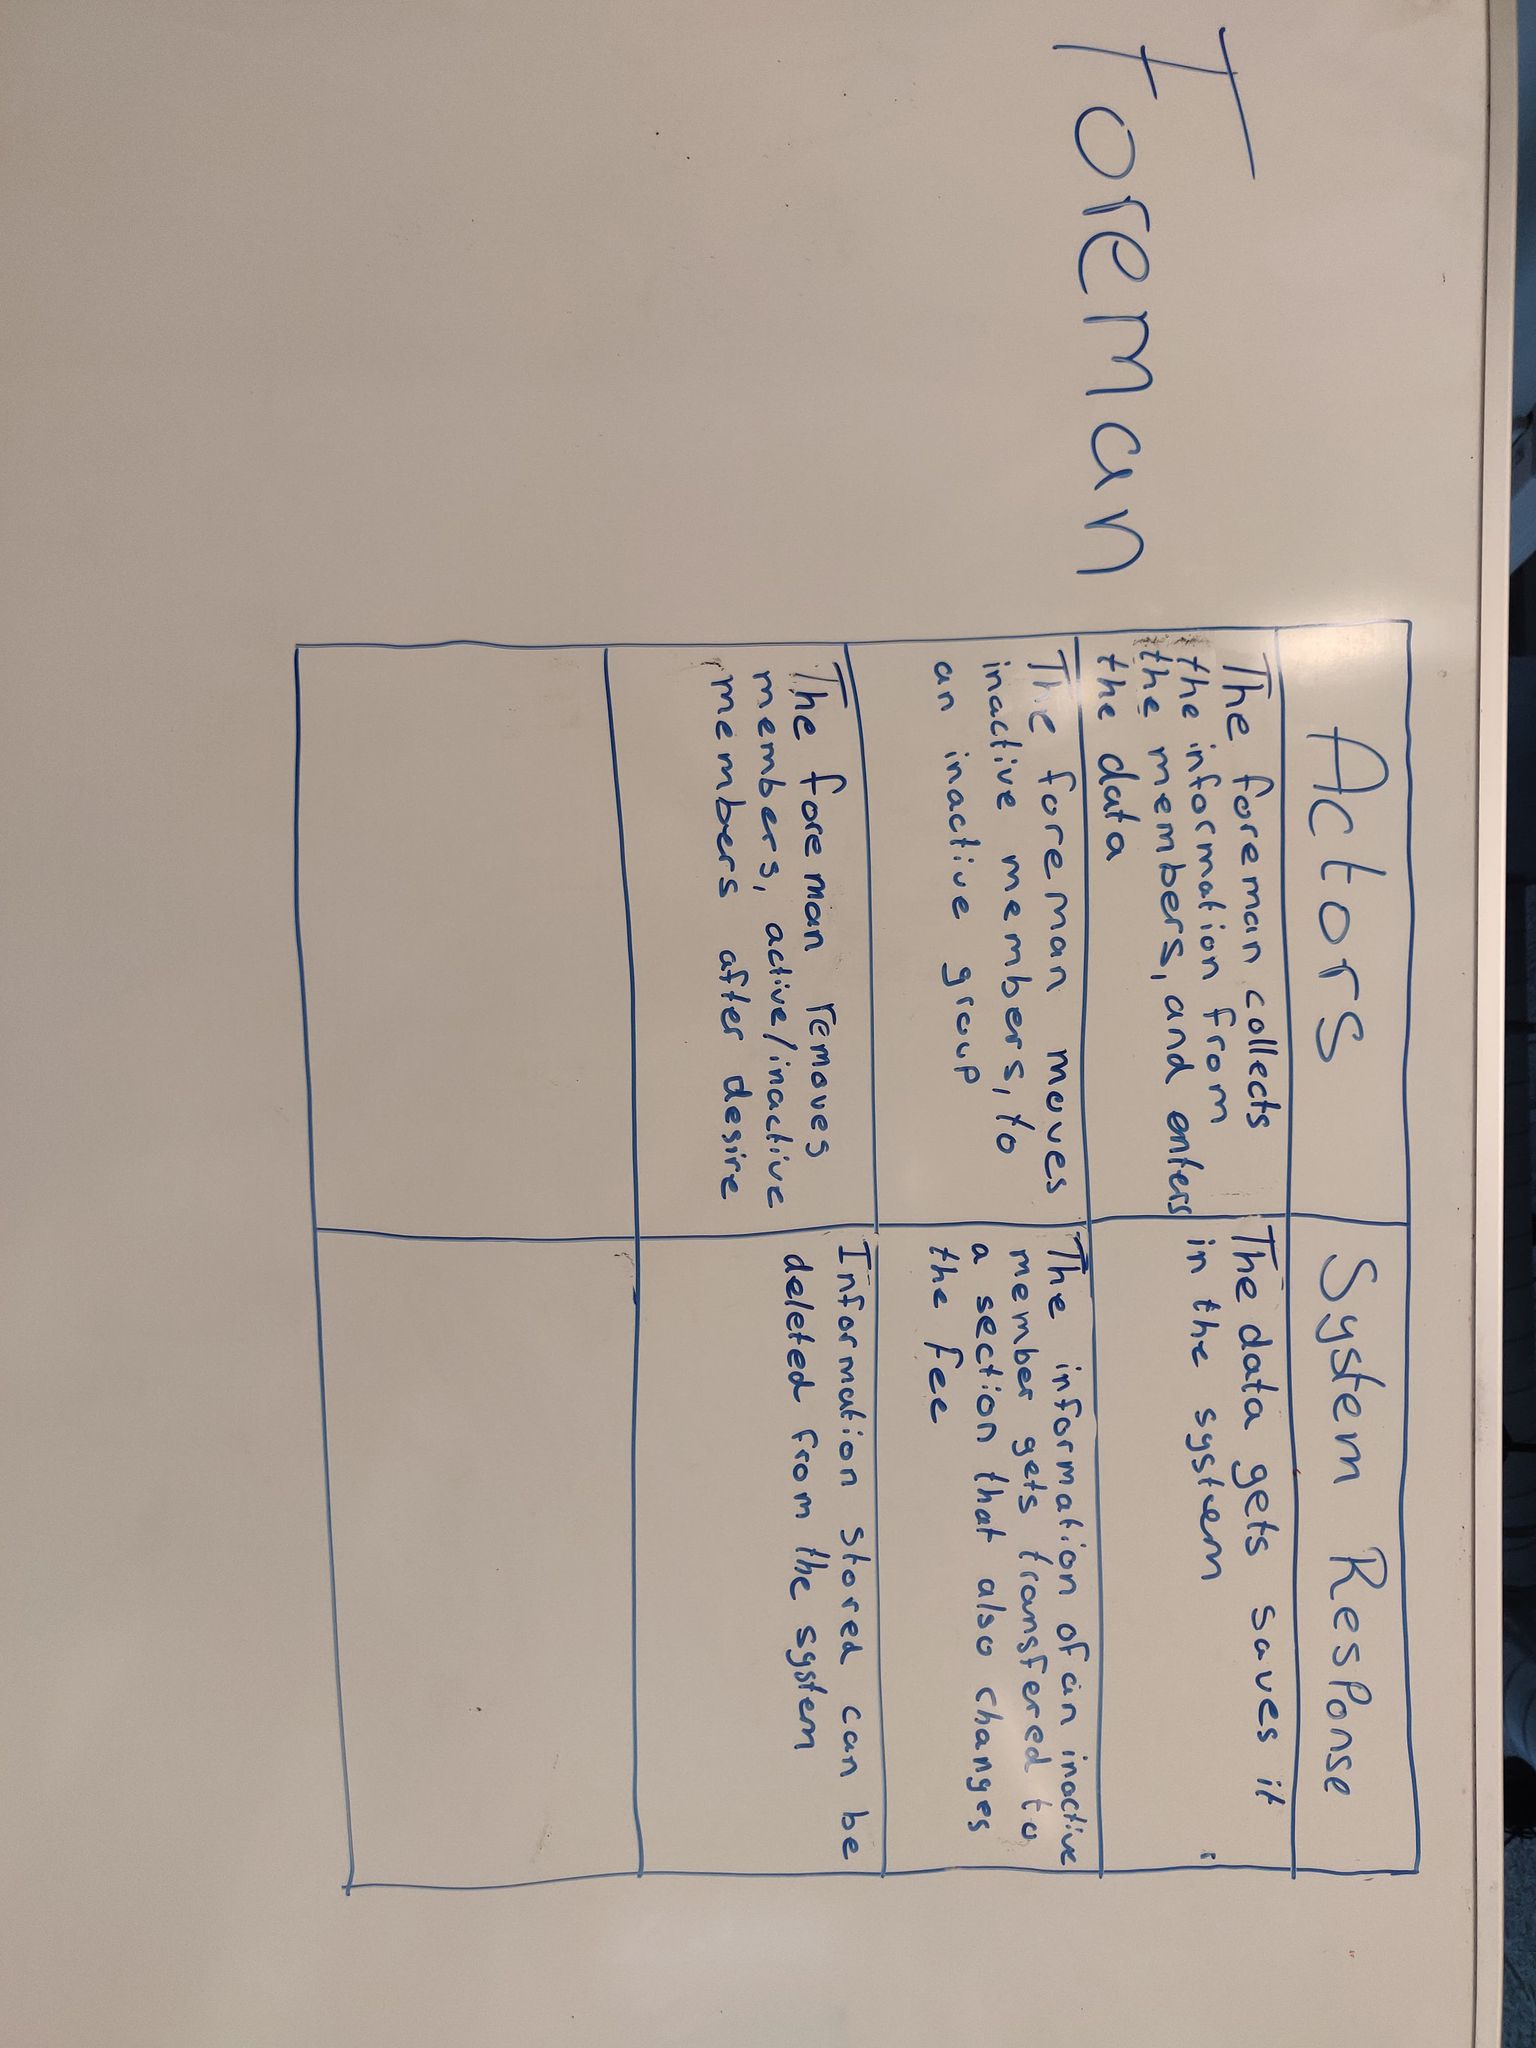 Foreman
Actors
System Response
The foreman collects
the information from
the members, and enters
the data
The data gets saves it
in the system
The foreman moves
inactive members, to
an inactive group
The information of an inactive
member gets transfered to
a section that also changes
the fee
The foreman removes
members, active/inactive
members after desire
Information stored can be
deleted from the system